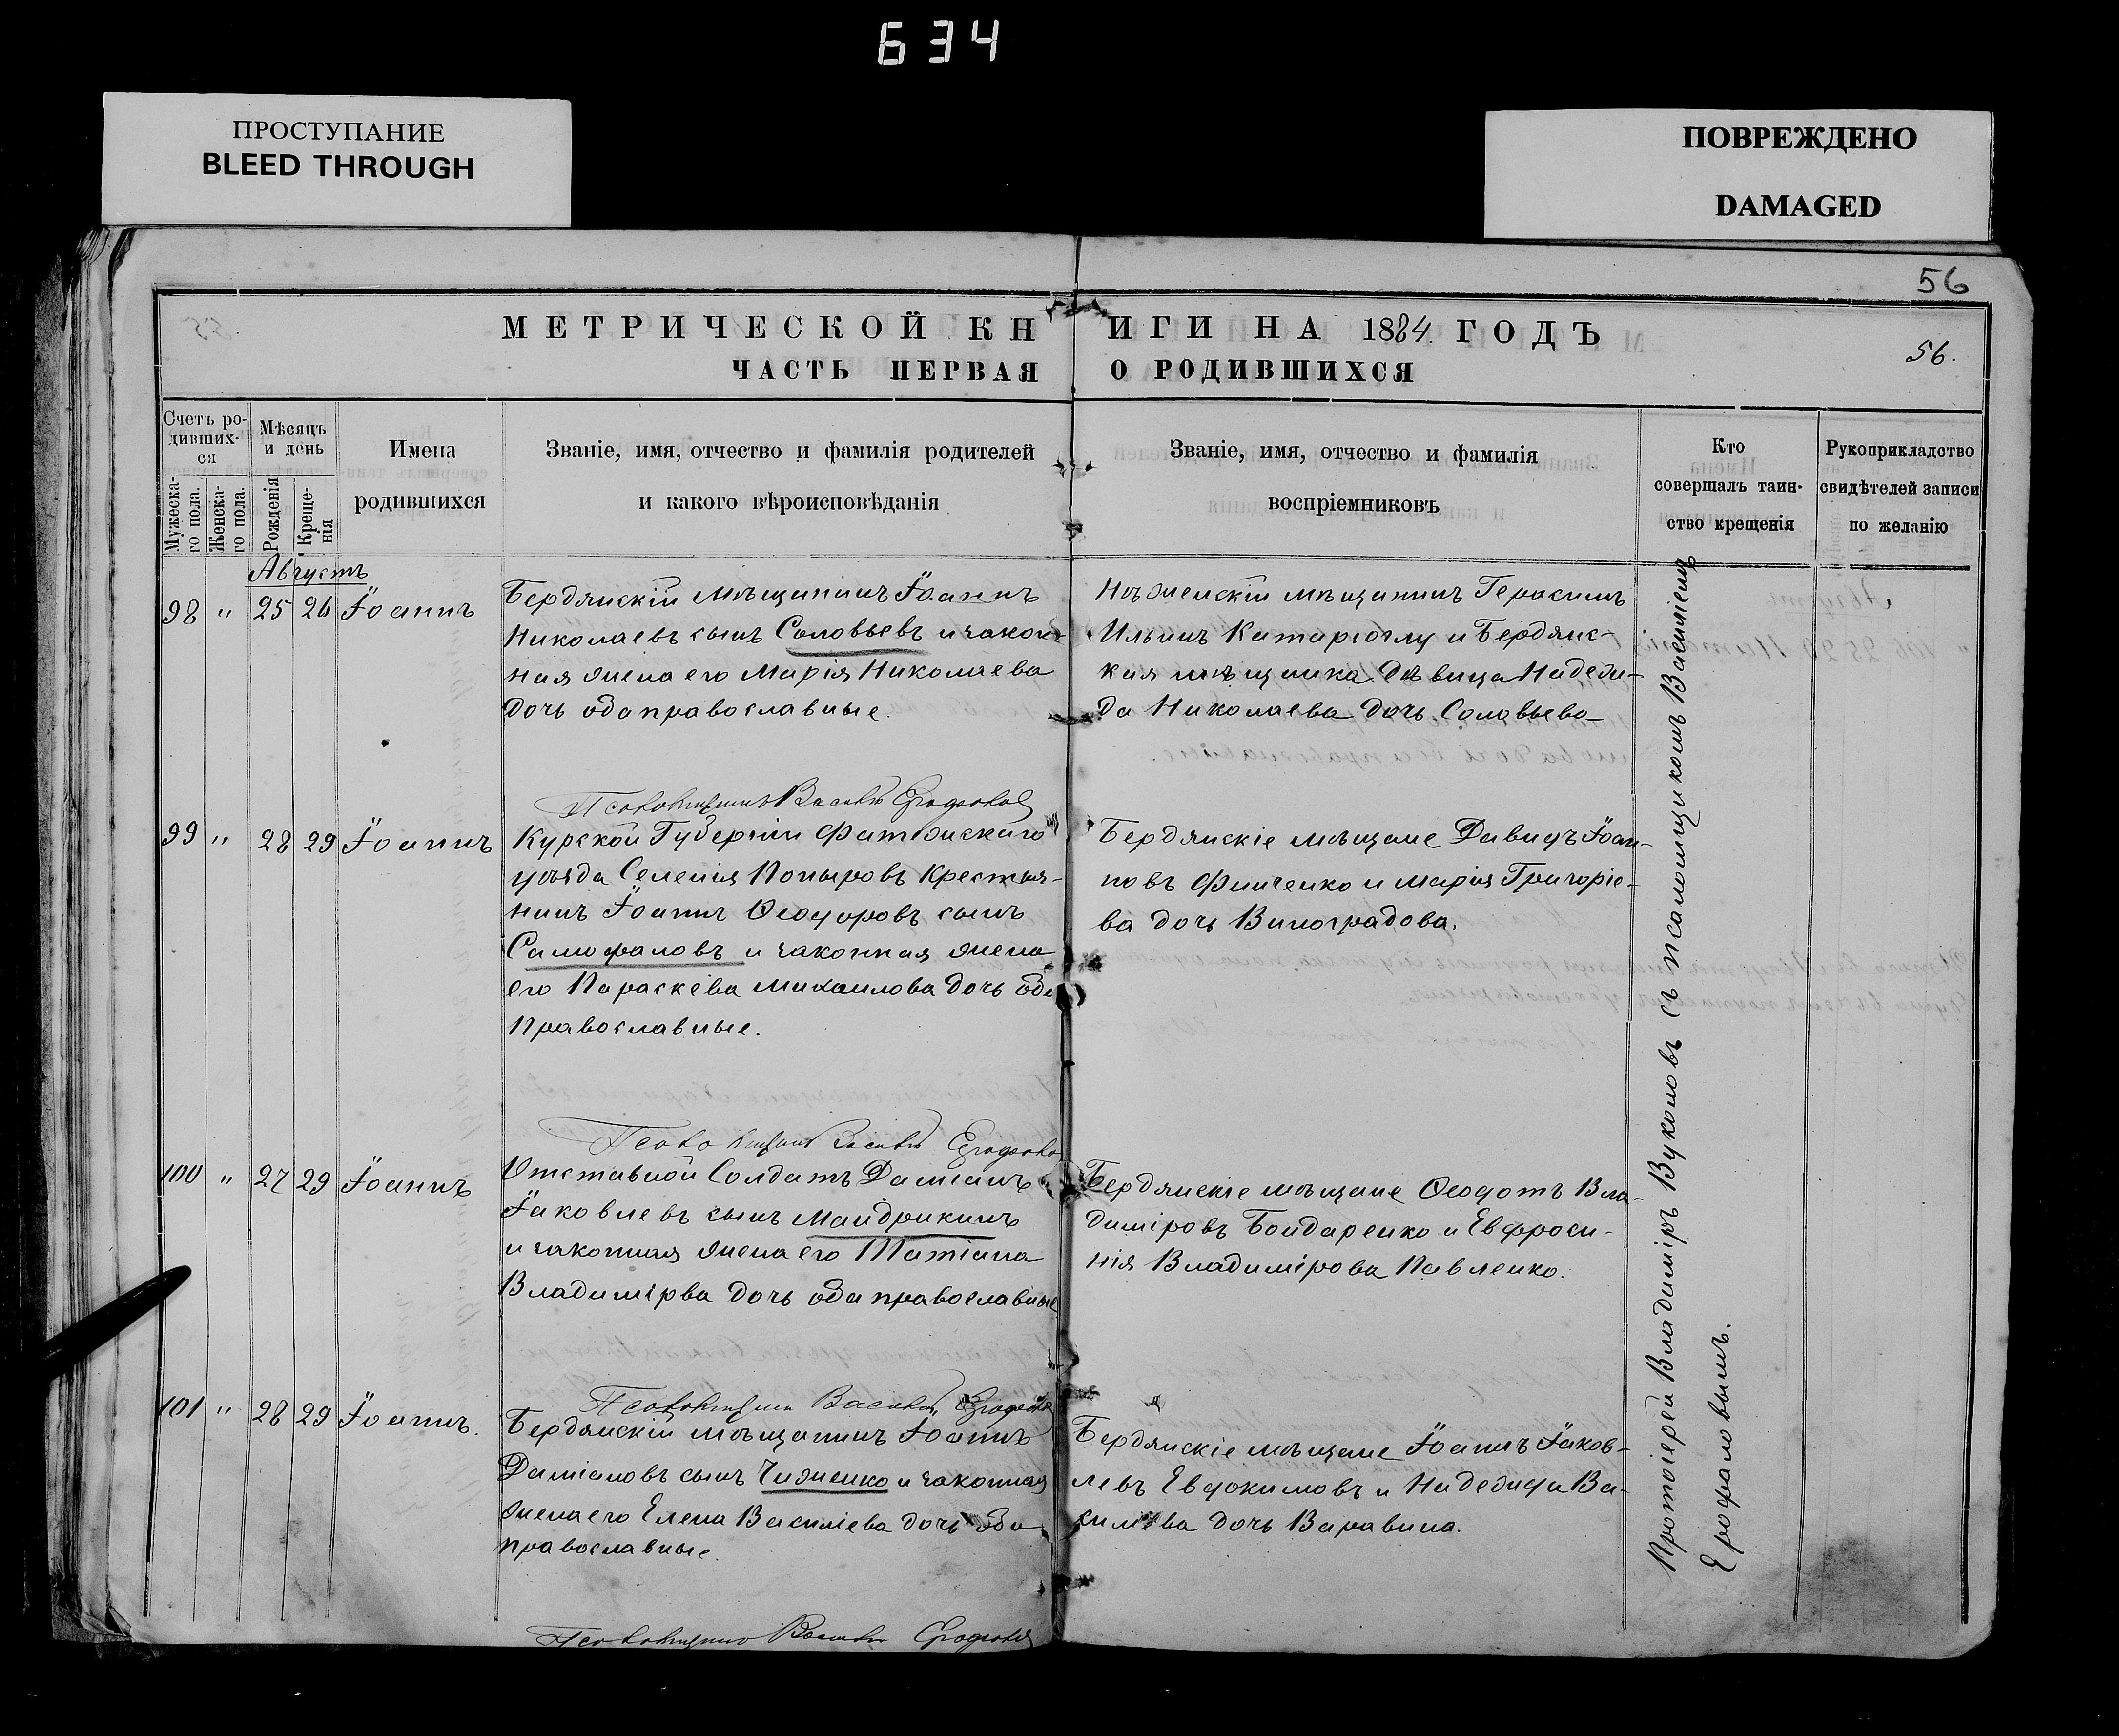 634
ПРОСТУПАНИЕ
BLEED THROUGH
ПОВРЕЖДЕНО
DAMAGED
56
МЕТРИЧЕСКОЙ КНИГИ НА 1884 ГОДЪ
56.
ЧАСТЬ ПЕРВАЯ О РОДИВШИХСЯ
Счетъ ро-
дивших-
ся
Мужеска-
го пола.
Женска-
го пола.
Мѣсяцъ
и день
Рожденія
Креще-
нія
Имена
родившихся
Званіе, имя, отчество и фамилія родителей
и какого вѣроисповѣданія
Званіе, имя, отчество и фамилія
воспріемниковъ
Кто
совершалъ таин-
ство крещенія
Рукоприкладство
свидѣтелей записи
по желанію
Августъ
98 " 25 26 Іоаннъ
Бердянскій мѣщанинъ Іоаннъ
Николаевъ сынъ Соловьевъ и закон-
ная жена его Марія Николаева
дочь оба православные.
Нѣженскій мѣщанинъ Герасимъ
Ильинъ Катаргоглу и Бердянс-
кая мѣщанка дѣвица Надеж-
да Николаева дочь Соловьева
Псаломщикъ Василій Ерофаловъ
99 " 28 29 Іоаннъ
Курской Губерніи Фатежскаго
уѣзда Селенія Поныровъ Крестья-
нинъ Іоаннъ Ѳеодоровъ сынъ
Самофаловъ и законная жена
его Параскева Михаилова дочь оба
православные.
Бердянскіе мѣщане Давидъ Іоан-
новъ Финченко и Марія Григоріе-
ва дочь Виноградова.
Псаломщикъ Василій Ерофаловъ
100 " 27 29 Іоаннъ
Отставной Солдатъ Даміанъ
Іаковлевъ сынъ Майдрикинъ
и законная жена его Татіана
Владимірва дочь оба православные
Бердянскіе мѣщане Ѳеодотъ Вла-
диміровъ Бондаренко и Евфроси-
нія Владимірова Павленко.
Псаломщикъ Василій Ерофаловъ
101 " 28 29 Іоаннъ.
Бердянскій мѣщанинъ Іоаннъ
Даміановъ сынъ Чиженко и законная
жена его Елена Василіева дочь оба
православные.
Бердянскіе мѣщане Іоаннъ Іаков-
левъ Евдокимовъ и Надежда Ва-
силіева дочь Варавина.
Псаломщикъ Василій Ерофаловъ
Протоіерей Владиміръ Вуколовъ съ псаломщикомъ Василіемъ
Ерофаловымъ.